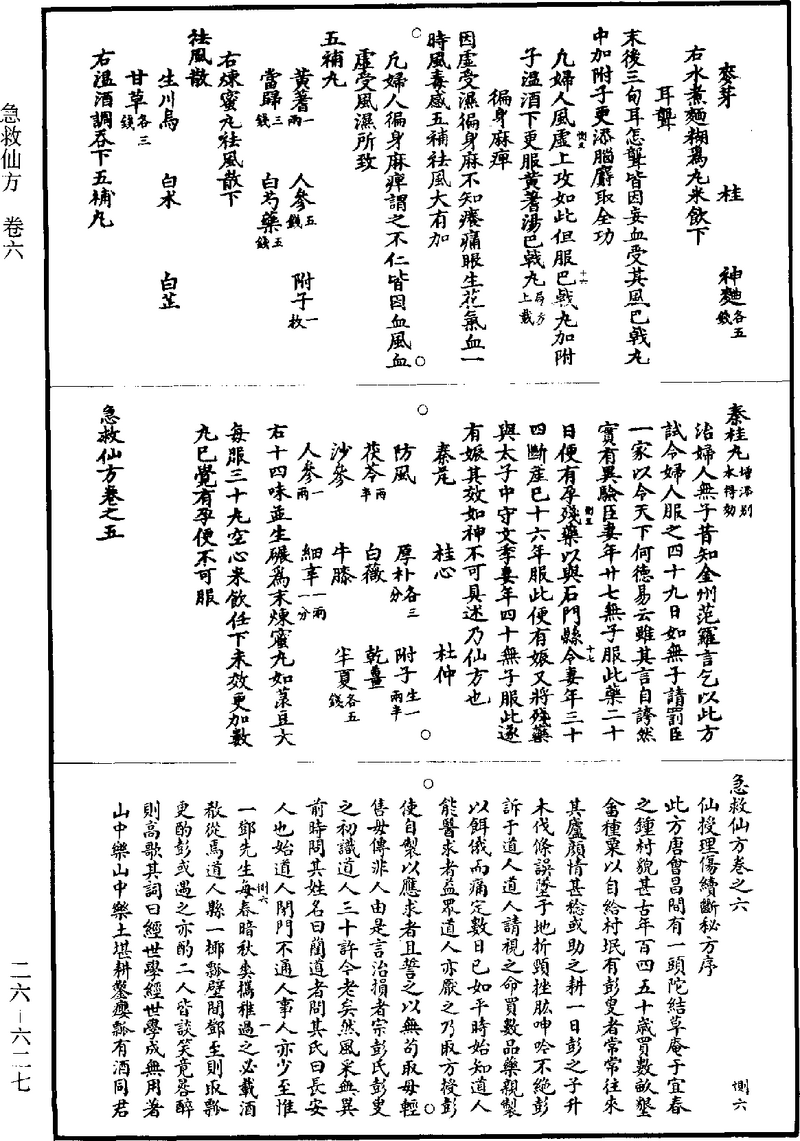 急救仙方 卷六
二六—六二七
麥芽 桂 神麯各五錢
右水煮麵糊爲丸米飲下
耳聾
末後三旬耳怎聾皆因妄血受其風巴戟丸
中加附子更添腦麝取全功
凡婦人風虛上攻如此但服巴戟丸加附
子溫酒下更服黃蓍湯巴戟丸局方上載
惻五
十六
徧身麻痺
因虛受濕徧身麻不知癢痛眼生花氣血一
時風毒感五補祛風大有加
凡婦人徧身麻痺謂之不仁皆因血風血
虛受風濕所致
五補丸
黃蓍一兩 人參五錢 附子一枚
當歸三錢 白芍藥五錢
右煉蜜丸祛風散下
祛風散
生川烏 白朮 白芷
甘草各三錢
右溫酒調吞下五補丸
秦桂丸增添別本得効
治婦人無子昔知金州范羅言乞以此方
試令婦人服之四十九日如無子請罰臣
一家以令天下何德易云雖其言自誇然
實有異驗臣妻年廿七無子服此藥二十
惻五
日便有孕殘藥以與石門縣令妻年三十
十七
四斷產已十六年服此便有娠又將殘藥
與太子中守文季妻年四十無子服此遂
有娠其效如神不可具述乃仙方也
秦艽 桂心 杜仲
防風 厚朴各三分 附子生一兩半
茯苓兩半 白薇 乾薑
沙參 牛膝 半夏各五錢
人參一兩 細辛一兩一分
右十四味並生碾爲末煉蜜丸如菉豆大
每服三十丸空心米飲任下未效更加數
丸已覺有孕便不可服
急救仙方卷之五
急救仙方卷之六
惻六
仙授理傷續斷秘方序
此方唐會昌間有一頭陀結草庵于宜春
之鍾村貌甚古年百四五十歲買數畝墾
畬種粟以自給村氓有彭叟者常常往來
其廬顔情甚稔或助之耕一日彭之子升
木伐條誤墜于地折頸挫肱呻吟不絕彭
訴于道人道人請視之命買數品藥親製
以餌俄而痛定數日已如平時始知道人
能醫求者益眾道人亦厭之乃取方授彭
使自製以應求者且誓之以無苟取毋輕
售毋傳非人由是言治損者宗彭氏彭叟
之初識道人三十許今老矣然風采無異
前時問其姓名曰藺道者問其氏曰長安
人也始道人閉門不通人事人亦少至惟
一鄧先生每春暗秋爽攜稚過之必載酒
惻六
一
殽從焉道人縣一椰瓢壁間鄧至則取瓢
更酌彭或遇之亦酌二人皆談笑竟晷醉
則高歌其詞曰經世學經世學成無用著
山中樂山中樂土堪耕鑿癭瓢有酒同君